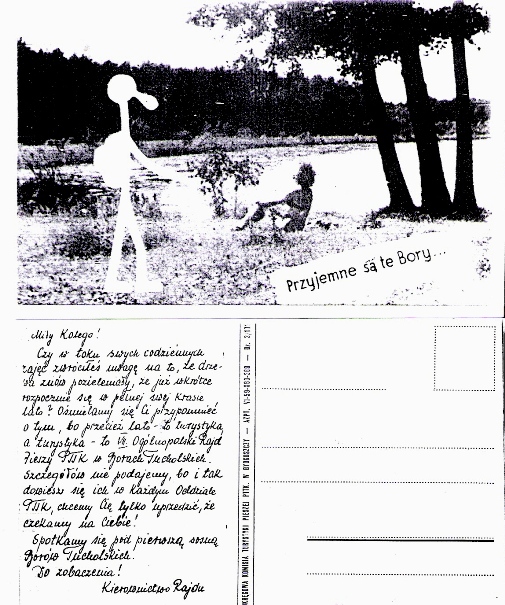 Przyjemne są te Bory...
Miły Kolego!
Czy w toku swych codziennych
zajęć zwróciłeś uwagę na to, że drze-
wa znów pozieleniały, że już wkrótce
rozpocznie się w pełnej swej krasie
lato? Ośmielamy się Ci przypomnieć
o tym, bo przecież lato - to turystyka,
a turystyka - to VII Ogólnopolski Rajd
Pieszy PTTK w Borach Tucholskich.
Szczegółów nie podajemy, bo i tak
dowiesz się ich w każdym Oddziale
PTTK, chcemy Cię tylko uprzedzić, że
czekamy na Ciebie!
Spotkamy się pod pierwszą sosną
Borów Tucholskich.
Do zobaczenia!
Kierownictwo Rajdu
OKRĘGOWA KOMISJA TURYSTYKI PIESZEJ PTTK. W BYDGOSZCZY